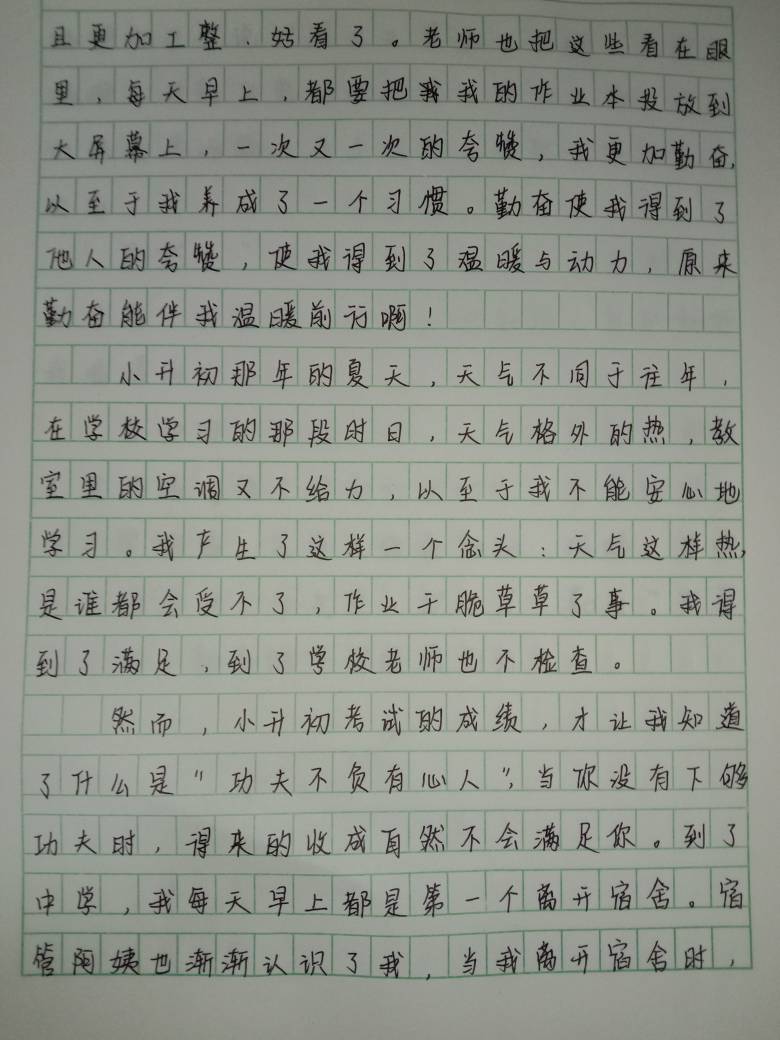 且更加工整、好看了。老师也把这些看在眼
里，每天早上，都要把我我的作业本投放到
大屏幕上，一次又一次的夸赞，我更加勤奋，
以至于我养成了一个习惯。勤奋使我得到了
他人的夸赞，使我得到了温暖与动力，原来
勤奋能伴我温暖前行啊！
小升初那年的夏天，天气不同于往年，
在学校学习的那段时日，天气格外的热，教
室里的空调又不给力，以至于我不能安心地
学习。我产生了这样一个念头：天气这样热，
是谁都会受不了，作业干脆草草了事。我得
到了满足，到了学校老师也不检查。
然而，小升初考试的成绩，才让我知道
了什么是“功夫不负有心人”，当你没有下够
功夫时，得来的收成自然不会满足你。到了
中学，我每天早上都是第一个离开宿舍。宿
管阿姨也渐渐认识了我，当我离开宿舍时，